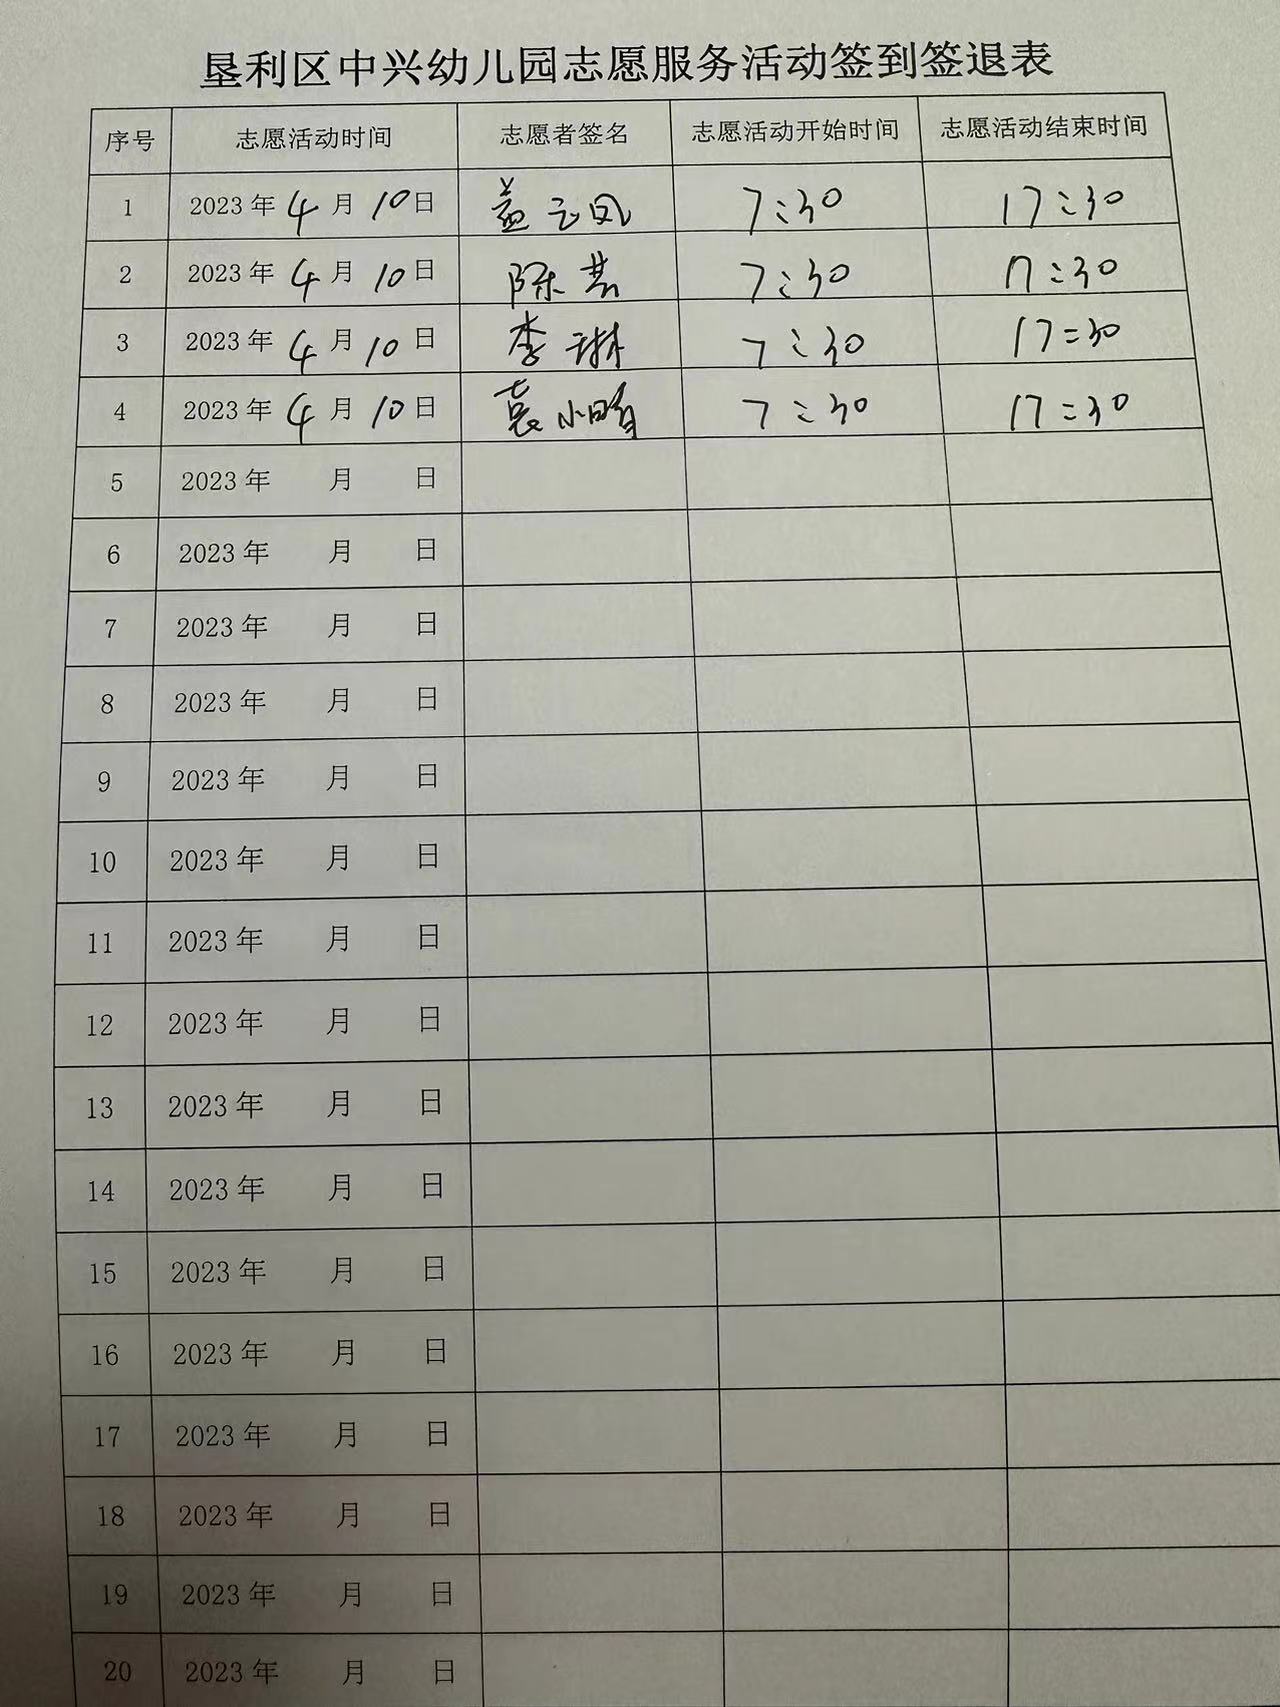 垦利区中兴幼儿园志愿服务活动签到签退表
序号 志愿活动时间 志愿者签名 志愿活动开始时间 志愿活动结束时间
1 2023年 4月 10日 盖云凤 7:30 17:30
2 2023年 4月 10日 陈芸 7:30 17:30
3 2023年 4月 10日 李琳 7:30 17:30
4 2023年 4月 10日 袁小晴 7:30 17:30
5 2023年 月 日
6 2023年 月 日
7 2023年 月 日
8 2023年 月 日
9 2023年 月 日
10 2023年 月 日
11 2023年 月 日
12 2023年 月 日
13 2023年 月 日
14 2023年 月 日
15 2023年 月 日
16 2023年 月 日
17 2023年 月 日
18 2023年 月 日
19 2023年 月 日
20 2023年 月 日